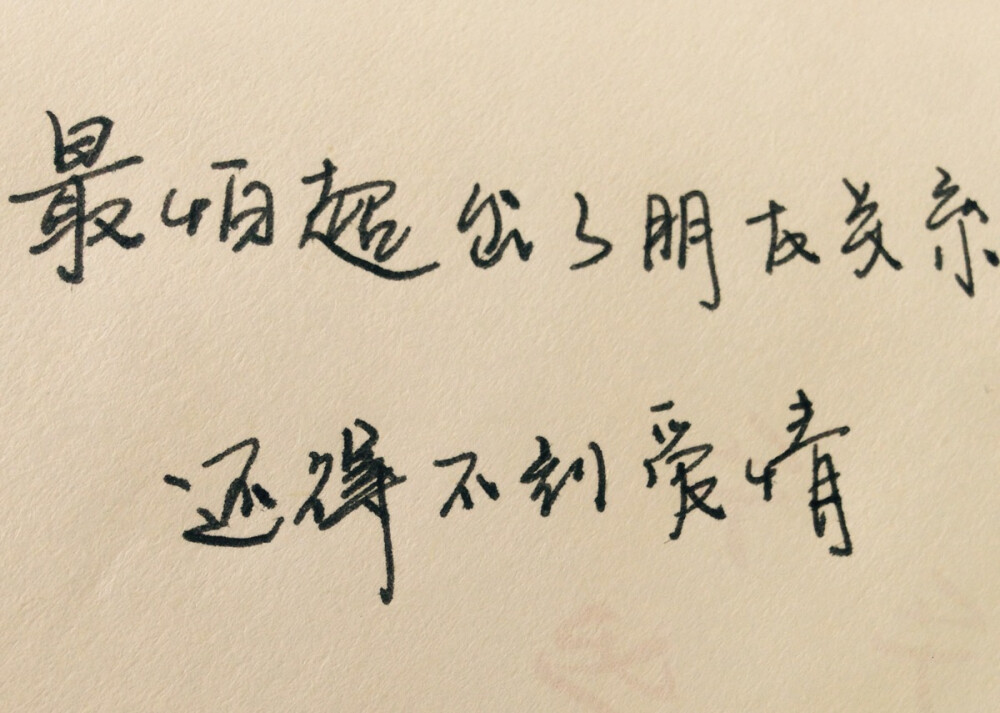 最怕超出了朋友关系
还得不到爱情